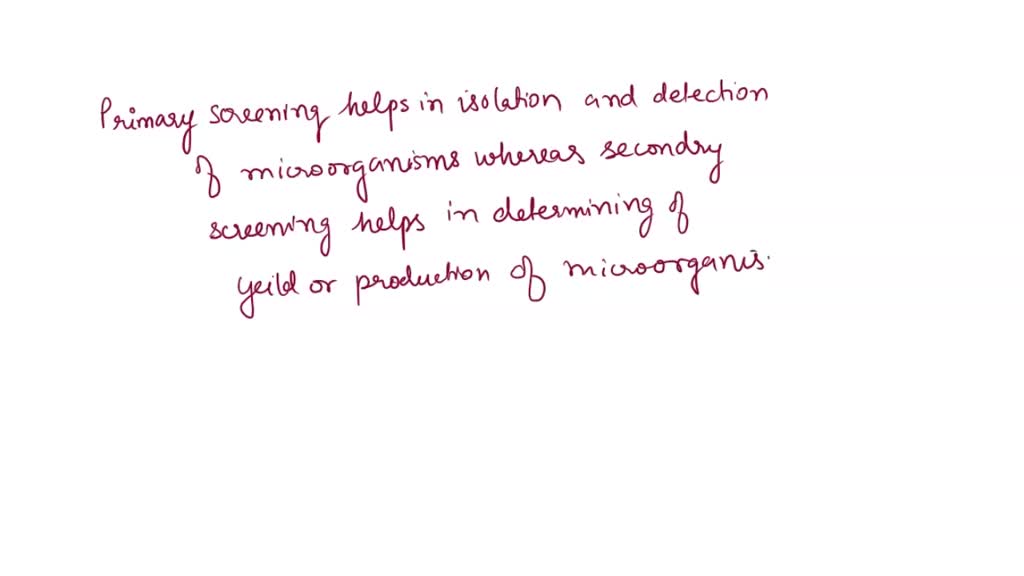 Primary screening helps in isolation and detection
of microorganisms whereas secondry
screening helps in determining of
yeild or production of microorganis.